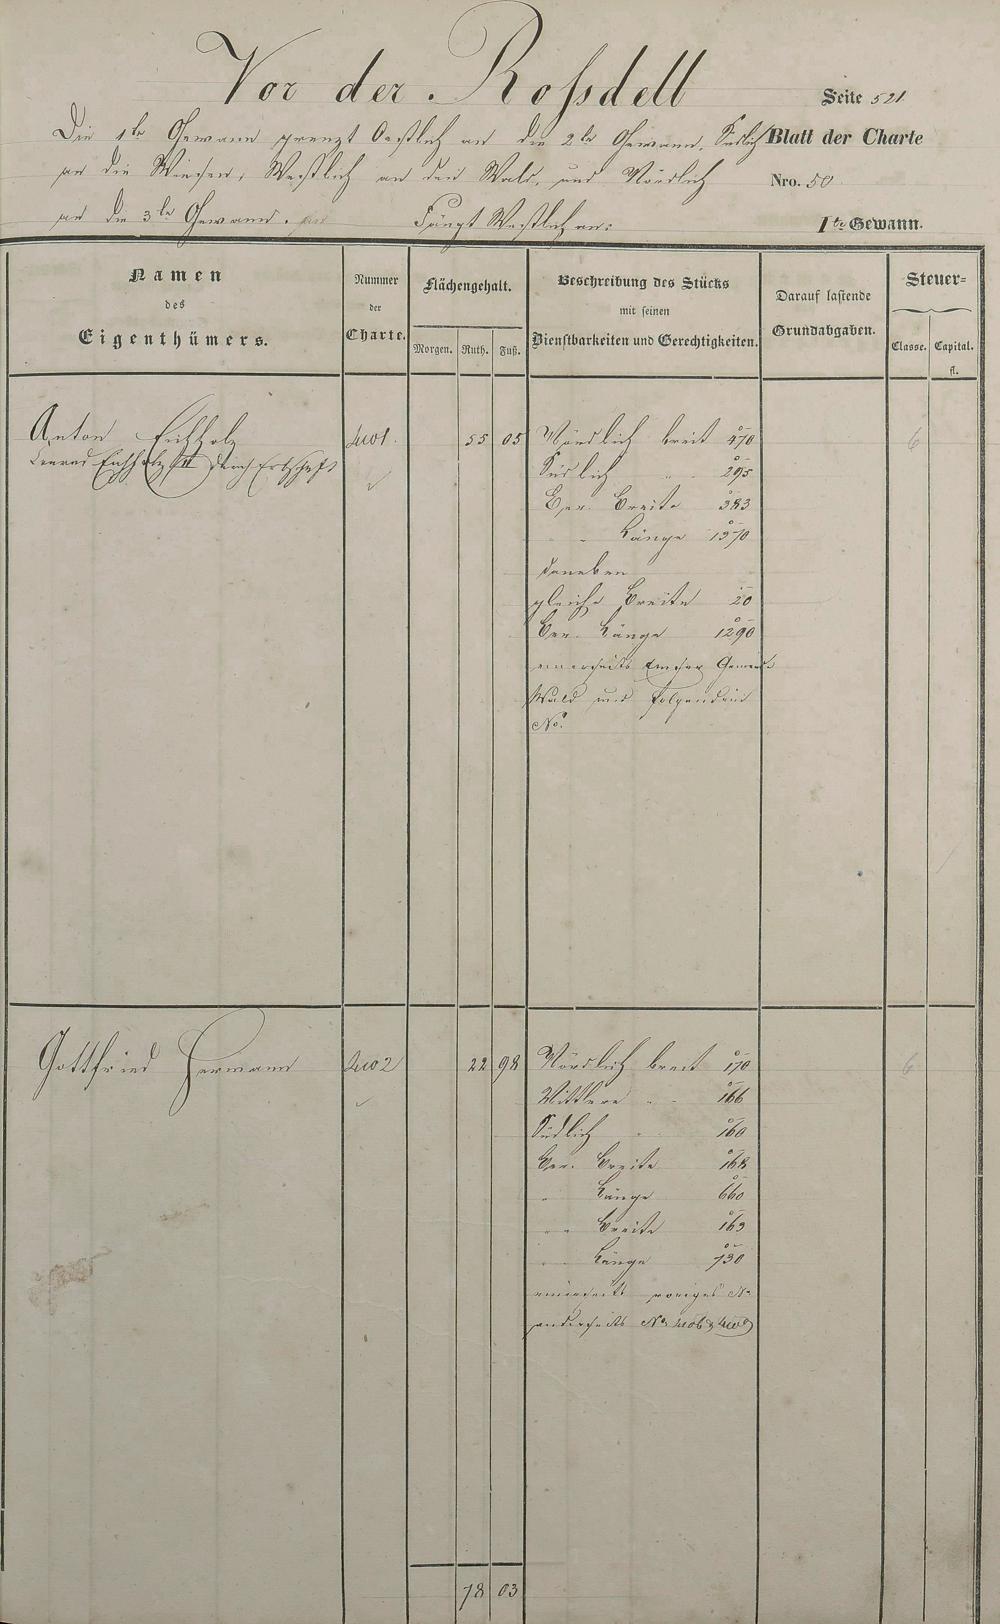 Vor der Roßdell
Seite 521
Die 1te Gewann grenzt Oestlich an die 2te Gewann, Südlich
Blatt der Charte
an die Wiesen, Westlich an den Wald, und Nördlich
Nro. 50
an die 3te Gewann. Fängt Westlich an:
1te Gewann.
Namen
des
Eigenthümers.
Nummer
der
Charte.
Flächengehalt.
Morgen. Ruth. Fuß.
Beschreibung des Stücks
mit seinen
Dienstbarkeiten und Gerechtigkeiten.
Darauf lastende
Grundabgaben.
Steuer-
Classe. Capital.
fl.
Anton Eichholz 4401. 55 05 Nördlich breit 470 6
Conrad Eichholz II durch Erbschaft
Südlich " " 295
Ber. Breite 383
" " Länge 1370
daneben
gleiche Breite 20
Ber. Länge 1290
einerseits Emser Gemeinde
Wald und folgendem
No.
Gottfried Hermann 4402 22 98 Nördlich breit 170 6
Mittlere " " 166
Südlich " " 160
Ber. Breite 168
" Länge 660
" " Breite 163
" " Länge 730
einerseits voriges No
anderseits No 4406 & 4403
78 03